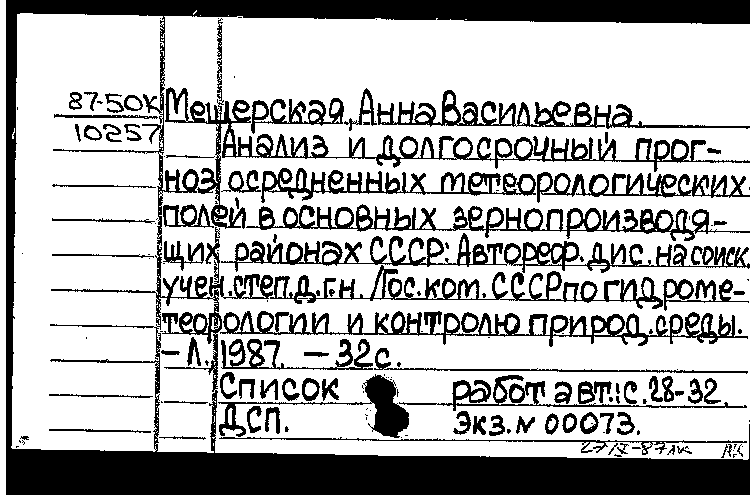 87-50К
10257
Мещерская, Анна Васильевна.
Анализ и долгосрочный прог-
ноз осредненных метеорологических
полей в основных зернопроизводя-
щих районах СССР: Автореф. дис. на соиск.
учен. степ. д.г.н. /Гос. ком. СССР по гидроме-
теорологии и контролю природ. среды.
– Л., 1987. – 32 с.
Список работ авт.: с. 28-32.
ДСП. Экз. № 00073.